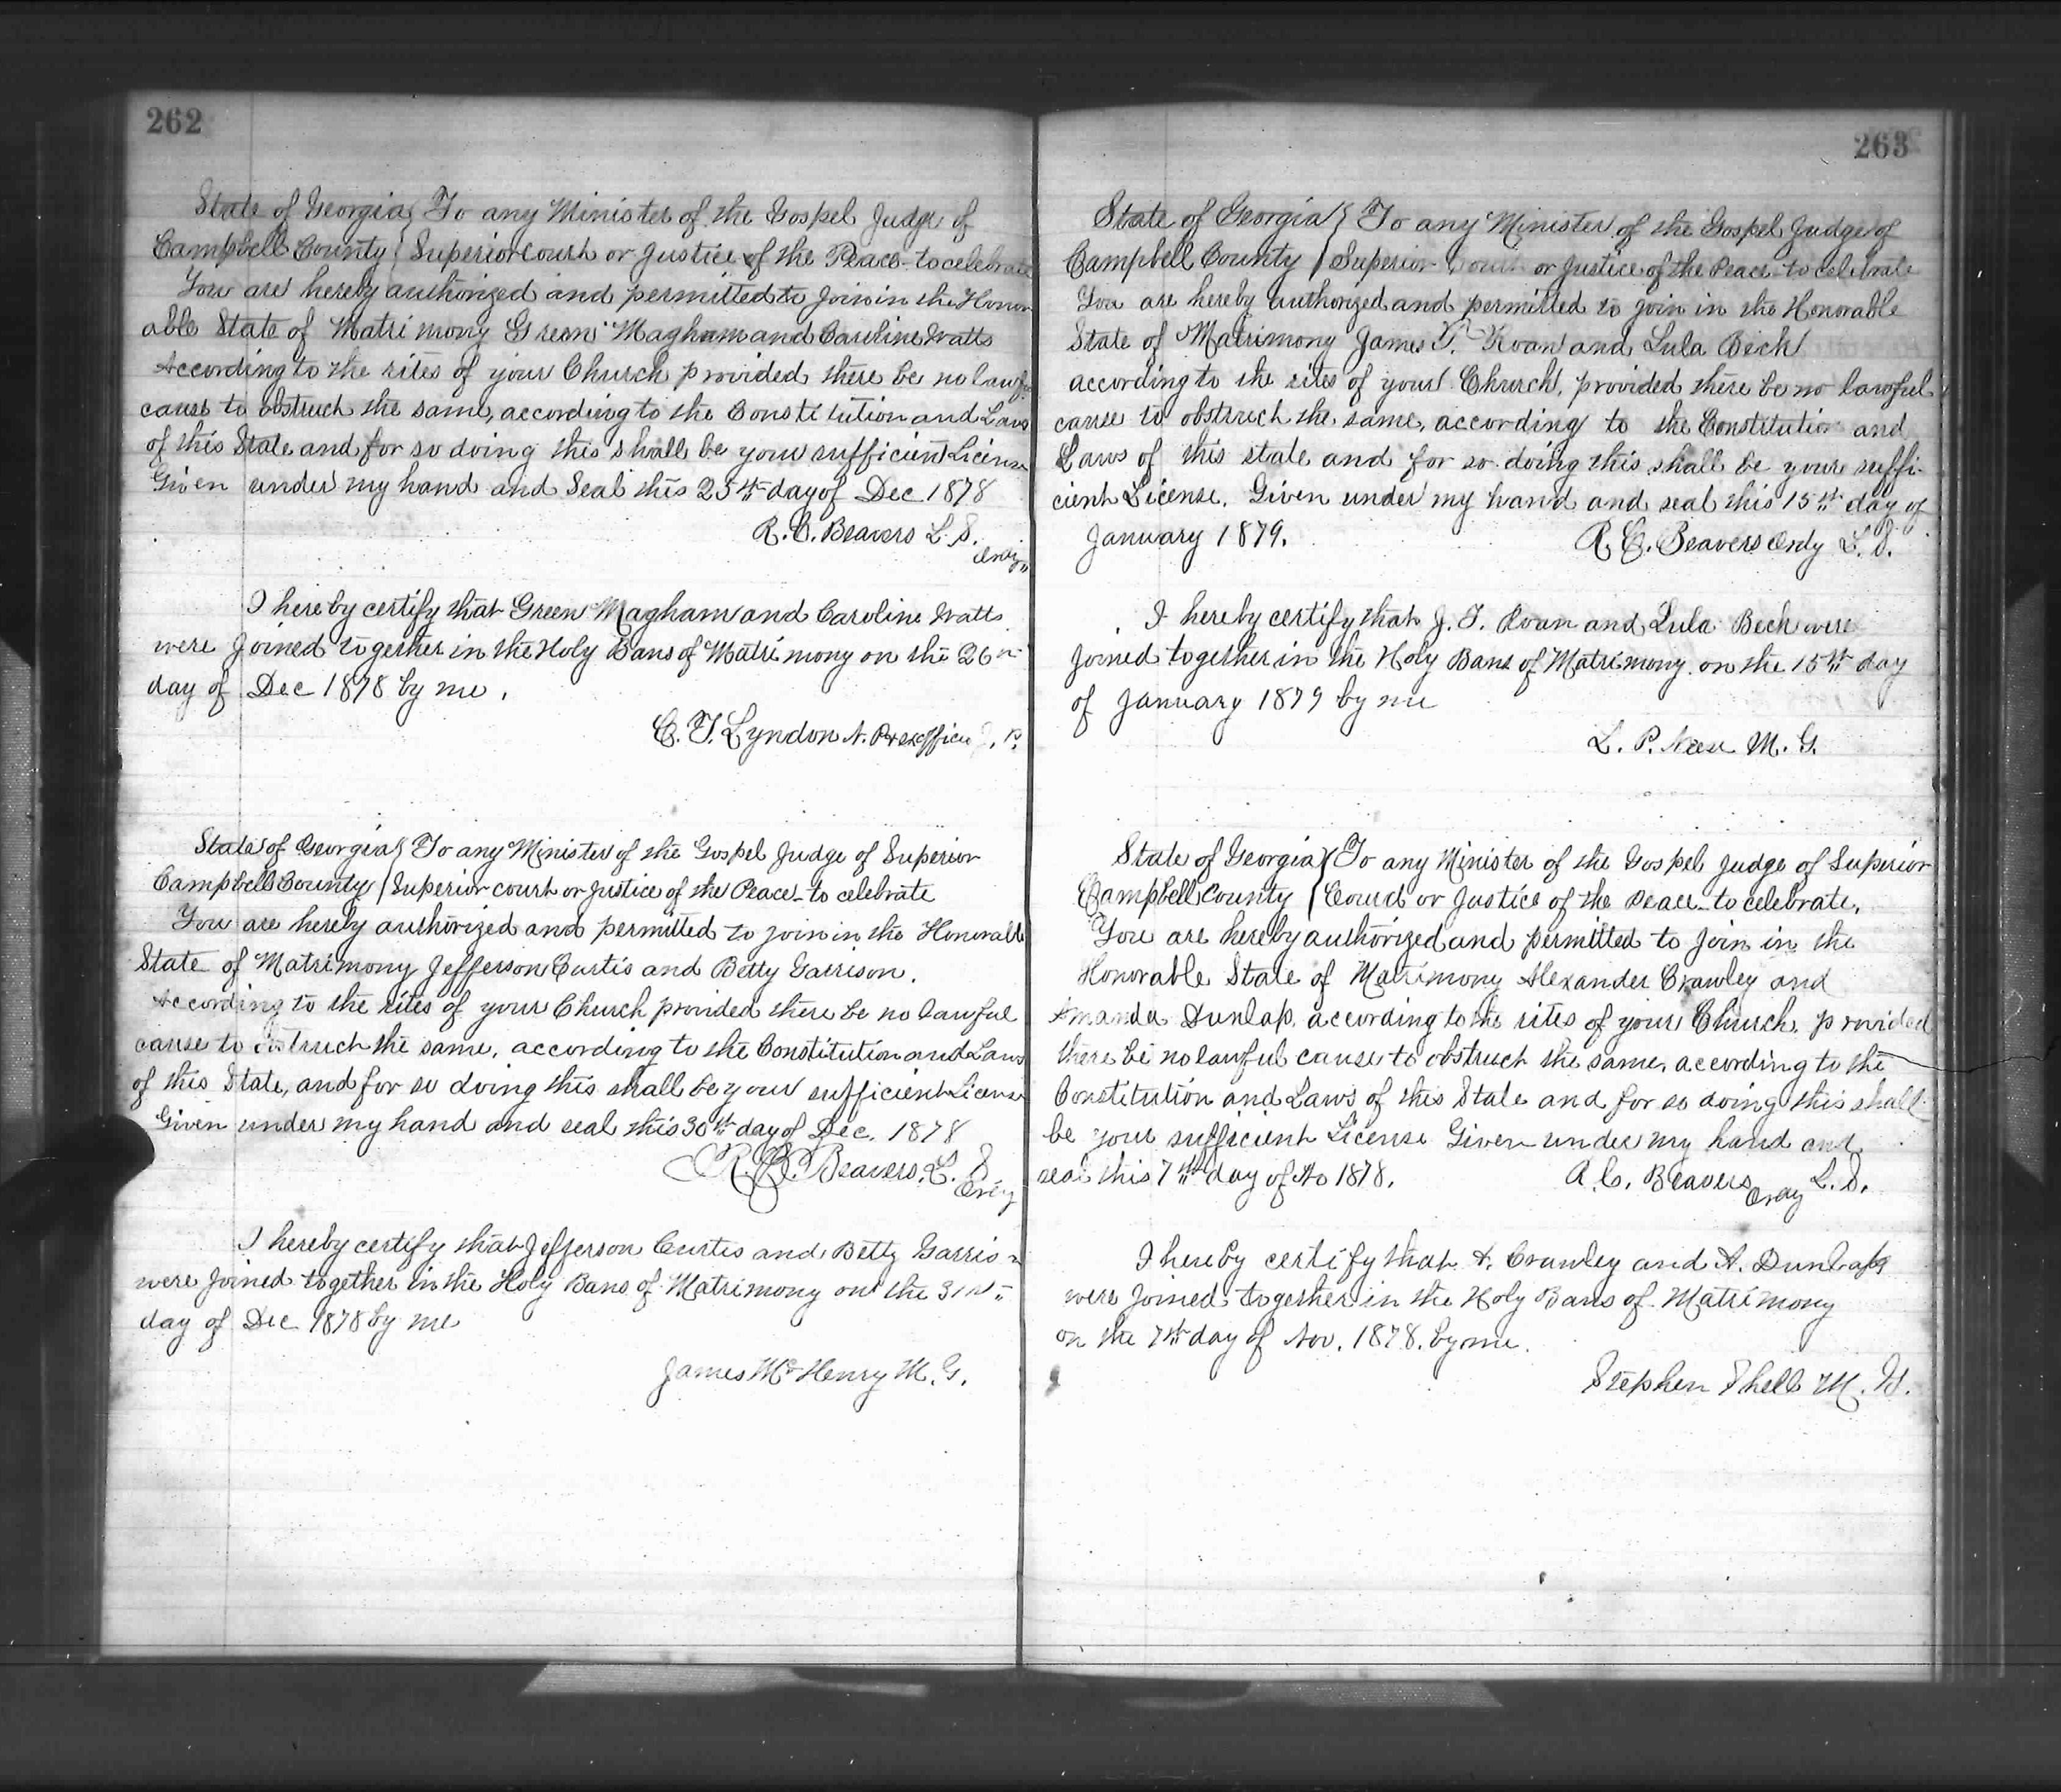 262
State of Georgia } To any Minister of the Gospel Judge of
Campbell County } Superior Court or Justice of the Peace to celebrate
You are hereby authorized and permitted to join in the Honor
able State of Matrimony Green Magham and Caroline Watts
According to the rites of your Church provided there be no lawful
cause to obstruct the same, according to the Constitution and Laws
of this State and for so doing this shall be your sufficient License
Given under my hand and Seal this 25th day of Dec 1878
R. C. Beavers L. S.
Ordy
I hereby certify that Green Magham and Caroline Watts
were joined together in the Holy Bans of Matrimony on the 26th
day of Dec 1878 by me.
C. T. Lyndon N. P. & exofficio J. P.
State of Georgia } To any Minister of the Gospel Judge of Superior
Campbell County } Superior court or Justice of the Peace - to celebrate
You are hereby authorized and permitted to join in the Honorable
State of Matrimony Jefferson Curtis and Betty Garrison.
According to the rites of your Church provided there be no lawful
cause to obstruct the same, according to the Constitution and Laws
of this State, and for so doing this shall be your sufficient License
Given under my hand and seal this 30th day of Dec. 1878
R. C. Beavers, L. S
Ordy
I hereby certify that Jefferson Curtis and Betty Garrison
were joined together in the Holy Bans of Matrimony on the 31st
day of Dec 1878 by me
James McHenry M. G.
263
State of Georgia } To any Minister of the Gospel Judge of
Campbell County } Superior Court or Justice of the Peace - to celebrate
You are hereby authorized and permitted to join in the Honorable
State of Matrimony James T. Roan and Lula Bech
according to the rites of your Church, provided there be no lawful
cause to obstruct the same, according to the Constitution and
Laws of this state and for so doing this shall be your suffi-
cient License. Given under my hand and seal this 15th day of
January 1879. R. C. Beavers Ordy L. S.
I hereby certify that J. T. Roan and Lula Bech were
joined together in the Holy Bans of Matrimony on the 15th day
of January 1879 by me
L. P. M. G.
State of Georgia } To any Minister of the Gospel Judge of Superior
Campbell County } Court or Justice of the Peace - to celebrate,
You are hereby authorized and permitted to join in the
Honorable State of Matrimony Alexander Crawley and
Amanda Dunlap, according to the rites of your Church, provided
there be no lawful cause to obstruct the same, according to the
Constitution and Laws of this State and for so doing this shall
be your sufficient License Given under my hand and
seal this 7th day of No 1878. R. C. Beavers L. S.
Ordy
I hereby certify that A. Crawley and A. Dunlap
were joined together in the Holy Bans of Matrimony
on the 7th day of Nov. 1878. by me.
Stephen Shell M. G.